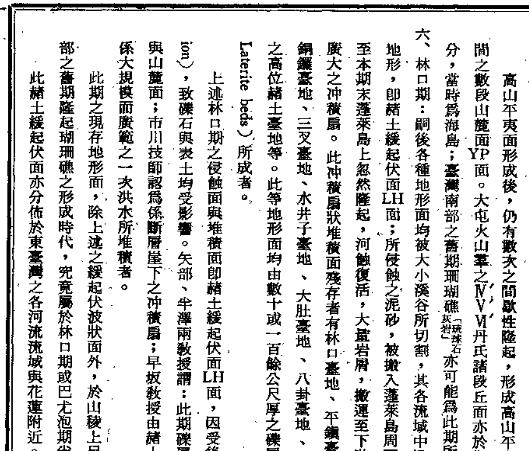 高山平夷面形成後，仍有數次之間歇性隆起，形成高山平
間之數段山麓面YP面。大屯火山羣之ⅣⅤⅥ丹氏諸段丘面亦於
分，當時爲海島；臺灣南部之舊期珊瑚礁（琉球石灰岩）亦可能爲此期所
六、林口期：嗣後各種地形面均被大小溪谷所切割，其各流域中
地形，卽諸土緩起伏面LH面；所侵蝕之泥砂，被搬入蓬萊島周
至本期末蓬萊島上忽然隆起，河蝕復活，大量岩屑，搬運至下
廣大之冲積扇。此冲積扇狀堆積面殘存者有林口臺地、平鎮臺
銅鑼臺地、三叉臺地、水井子臺地、大肚臺地、八卦臺地、
之高位諸土臺地等。此等地形面均由數十或一百餘公尺厚之礫
Laterite beds）所成者。
上述林口期之侵蝕面與堆積面卽諸土緩起伏面LH面，因受後
ion），致礫石與表土均受影響。矢部、半澤兩敎授謂：此期礫
與山麓面；市川技師認爲係斷層崖下之冲積扇；早坂敎授由諸
係大規模而廣範之一次洪水所堆積者。
此期之現存地形面，除上述之緩起伏波狀面外，於山稜上
部之舊期隆起珊瑚礁之形成時代，究竟屬於林口期或巴尤泡期
此諸土緩起伏面亦分佈於東臺灣之各河流流域與花蓮附近。